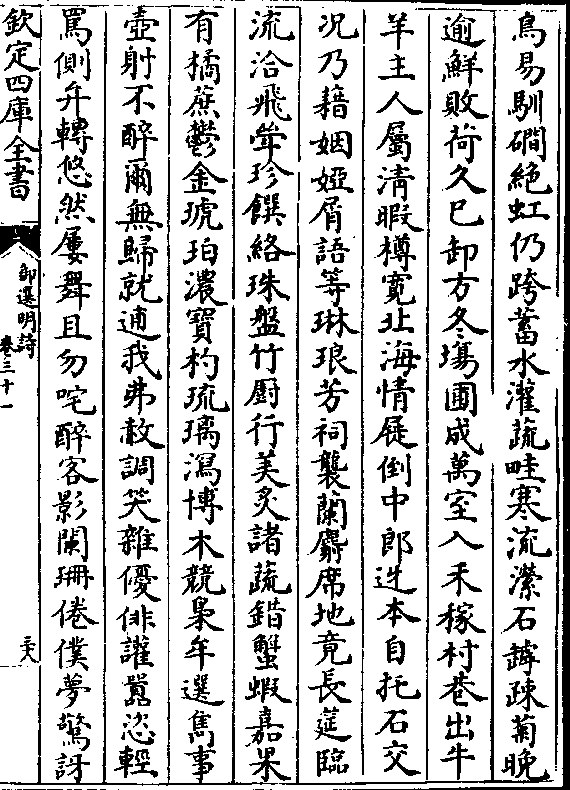 鳥易馴磵絶虹仍跨蓄水灌蔬畦寒流瀠石罅疎菊晚
逾鮮敗荷久已卸方冬塲圃成萬室入禾稼村巷出牛
羊主人屬清暇樽寛北海情屣倒中郎迓本自托石交
况乃藉姻婭屑語等琳琅芳祠襲蘭麝席地竟長筵臨
流洽飛斝珍饌絡珠盤竹厨行美炙諸蔬錯蟹蝦嘉果
有橘蔗鬱金琥珀濃寶杓琉璃瀉博木競梟牟選雋事
壺射不醉爾無歸就逋我弗赦調笑雜優俳讙囂恣輕
罵側弁轉悠然屢舞且勿咤醉客影闌珊倦僕夢驚訝
欽定四庫全書
御選明詩
卷三十一
三六